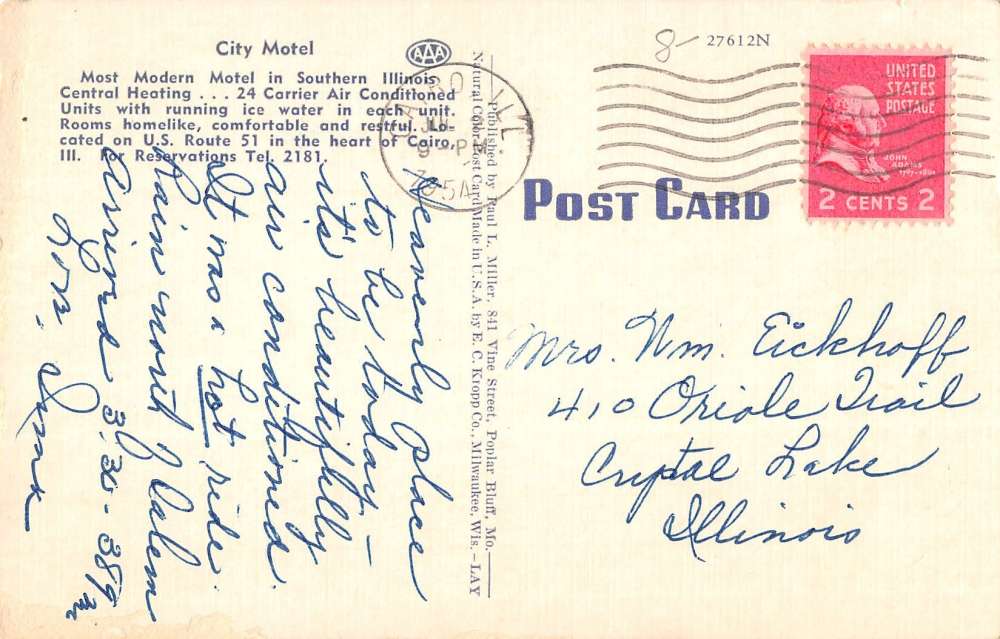 City Motel
AAA
Most Modern Motel in Southern Illinois
Central Heating . . . 24 Carrier Air Conditioned
Units with running ice water in each unit.
Rooms homelike, comfortable and restful. Lo-
cated on U.S. Route 51 in the heart of Cairo,
Ill. For Reservations Tel. 2181.
8-
27612N
CAIRO ILL.
9 - PM
UNITED
STATES
POSTAGE
JOHN
ADAMS
1797-1801
2 CENTS 2
POST CARD
Published by Paul L. Miller, 841 Vine Street, Poplar Bluff, Mo.
Natural Color Post Card Made in U.S.A. by E. C. Kropp Co., Milwaukee, Wis.—LAY
Heavenly place
to be today -
it's beautifully
air conditioned.
It was a hot ride.
Rain north of Salem
Arrived 3:30 - 389 mi
Love,
Mrs. Wm. Eickhoff
410 Oriole Trail
Crystal Lake
Illinois